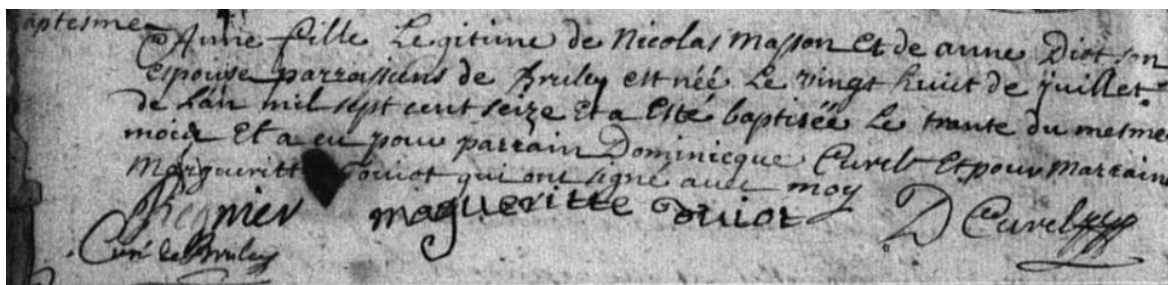 aptesme
Anne fille Legitime de Nicolas Masson Et de anne Diot son
Espouse parroissiens de Bruley est née Le vingt huict de juillet
de Lan mil sept cent seize Et a Esté baptiseë Le trante du mesme
mois Et a eu pour parrain Dominicque Curel Et pour Marraine
Margueritte Touiot qui ont signé avec moy
Regnier magueritte touiot D Curel
Curé de Bruley